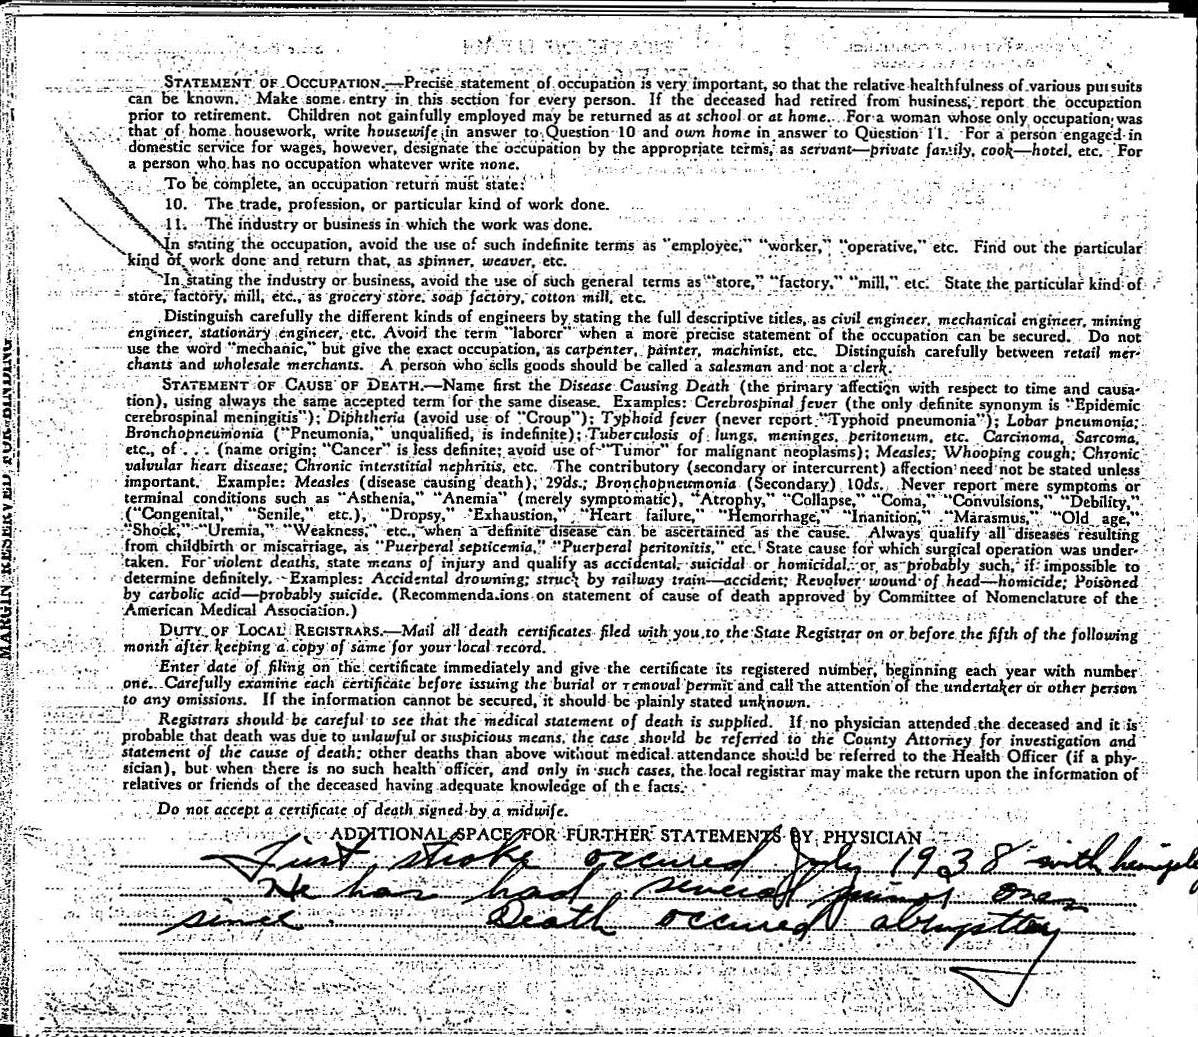 STATEMENT OF OCCUPATION.—Precise statement of occupation is very important, so that the relative healthfulness of various pursuits
can be known. Make some entry in this section for every person. If the deceased had retired from business, report the occupation
prior to retirement. Children not gainfully employed may be returned as at school or at home. For a woman whose only occupation was
that of home housework, write housewife in answer to Question 10 and own home in answer to Question 11. For a person engaged in
domestic service for wages, however, designate the occupation by the appropriate terms, as servant—private family, cook—hotel, etc. For
a person who has no occupation whatever write none.
To be complete, an occupation return must state:
10. The trade, profession, or particular kind of work done.
11. The industry or business in which the work was done.
In stating the occupation, avoid the use of such indefinite terms as "employee," "worker," "operative," etc. Find out the particular
kind of work done and return that, as spinner, weaver, etc.
In stating the industry or business, avoid the use of such general terms as "store," "factory," "mill," etc. State the particular kind of
store, factory, mill, etc., as grocery store, soap factory, cotton mill, etc.
Distinguish carefully the different kinds of engineers by stating the full descriptive titles, as civil engineer, mechanical engineer, mining
engineer, stationary engineer, etc. Avoid the term "laborer" when a more precise statement of the occupation can be secured. Do not
use the word "mechanic," but give the exact occupation, as carpenter, painter, machinist, etc. Distinguish carefully between retail mer-
chants and wholesale merchants. A person who sells goods should be called a salesman and not a clerk.
STATEMENT OF CAUSE OF DEATH.—Name first the Disease Causing Death (the primary affection with respect to time and causa-
tion), using always the same accepted term for the same disease. Examples: Cerebrospinal fever (the only definite synonym is "Epidemic
cerebrospinal meningitis"); Diphtheria (avoid use of "Croup"); Typhoid fever (never report "Typhoid pneumonia"); Lobar pneumonia;
Bronchopneumonia ("Pneumonia," unqualified, is indefinite); Tuberculosis of lungs, meninges, peritoneum, etc. Carcinoma, Sarcoma,
etc., of . . . (name origin; "Cancer" is less definite; avoid use of "Tumor" for malignant neoplasms); Measles; Whooping cough; Chronic
valvular heart disease; Chronic interstitial nephritis, etc. The contributory (secondary or intercurrent) affection need not be stated unless
important. Example: Measles (disease causing death), 29ds.; Bronchopneumonia (Secondary) 10ds. Never report mere symptoms or
terminal conditions such as "Asthenia," "Anemia" (merely symptomatic), "Atrophy," "Collapse," "Coma," "Convulsions," "Debility,"
("Congenital," "Senile," etc.), "Dropsy," "Exhaustion," "Heart failure," "Hemorrhage," "Inanition," "Marasmus," "Old age,"
"Shock," "Uremia," "Weakness," etc., when a definite disease can be ascertained as the cause. Always qualify all diseases resulting
from childbirth or miscarriage, as "Puerperal septicemia," "Puerperal peritonitis," etc. State cause for which surgical operation was under-
taken. For violent deaths, state means of injury and qualify as accidental, suicidal or homicidal, or as probably such, if impossible to
determine definitely. Examples: Accidental drowning; struck by railway train—accident; Revolver wound of head—homicide; Poisoned
by carbolic acid—probably suicide. (Recommendations on statement of cause of death approved by Committee of Nomenclature of the
American Medical Association.)
DUTY OF LOCAL REGISTRARS.—Mail all death certificates filed with you to the State Registrar on or before the fifth of the following
month after keeping a copy of same for your local record.
Enter date of filing on the certificate immediately and give the certificate its registered number, beginning each year with number
one. Carefully examine each certificate before issuing the burial or removal permit and call the attention of the undertaker or other person
to any omissions. If the information cannot be secured, it should be plainly stated unknown.
Registrars should be careful to see that the medical statement of death is supplied. If no physician attended the deceased and it is
probable that death was due to unlawful or suspicious means, the case should be referred to the County Attorney for investigation and
statement of the cause of death; other deaths than above without medical attendance should be referred to the Health Officer (if a phy-
sician), but when there is no such health officer, and only in such cases, the local registrar may make the return upon the information of
relatives or friends of the deceased having adequate knowledge of the facts.
Do not accept a certificate of death signed by a midwife.
ADDITIONAL SPACE FOR FURTHER STATEMENTS BY PHYSICIAN
First stroke occured July 1938 with
He has had several minor ones
since. Death occured abruptley
MARGIN RESERVED FOR BINDING